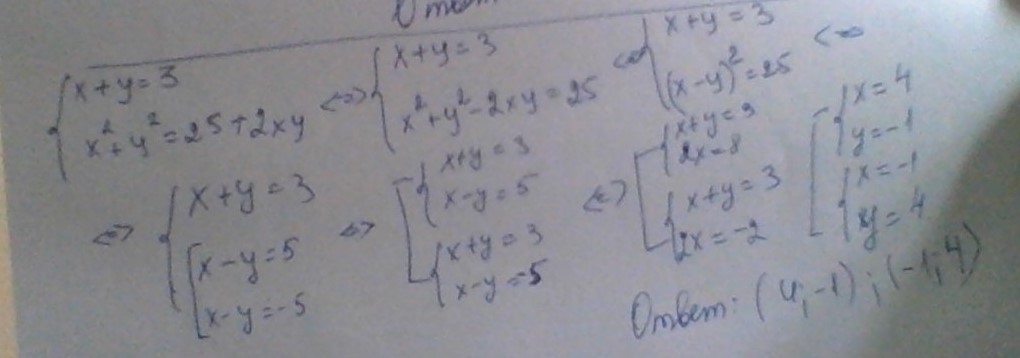 { x+y=3 ; x²+y²=25+2xy <=> { x+y=3 ; x²+y²-2xy=25 <=> { x+y=3 ; (x-y)²=25 <=>
<=> { x+y=3 ; [ x-y=5 ; x-y=-5 <=> [ { x+y=3 ; x-y=5 ; { x+y=3 ; x-y=-5 <=> [ { x+y=3 ; 2x=8 ; { x+y=3 ; 2x=-2 [ { x=4 ; y=-1 ; { x=-1 ; y=4
Ответ: (4;-1);(-1;4)